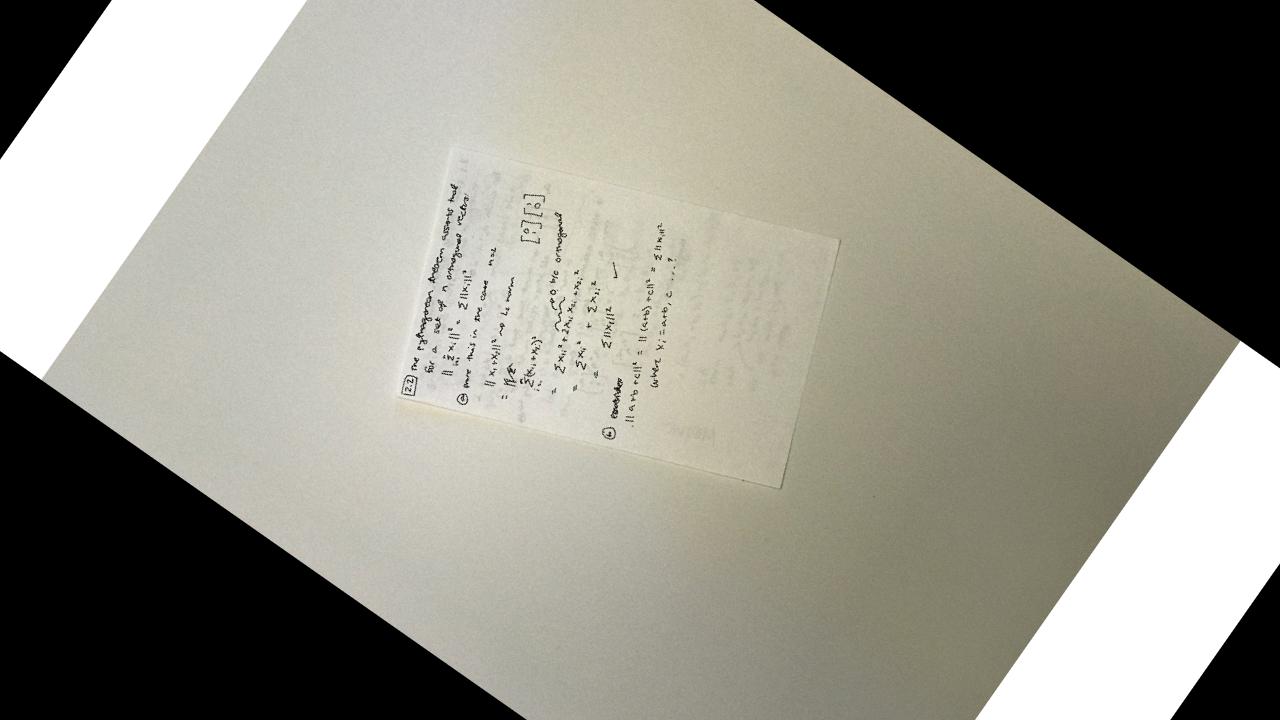 2.2 The pythagorean theorem asserts that
for a set of n orthogonal vectors
|| Σ xᵢ ||² = Σ ||xᵢ||²
(a) Prove this in the case n=2
|| x₁+x₂||² → L₂ norm
=
Σ(x₁ᵢ+x₂ᵢ)² [0 1] [1 0]
= Σ x₁ᵢ² + 2x₁ᵢ x₂ᵢ + x₂ᵢ² → 0 b/c orthogonal
= Σ x₁ᵢ² + Σ x₂ᵢ²
= Σ||xᵢ||² ✓
(b) consider
||a+b+c||² = ||(a+b)+c||² = Σ||xᵢ||²
where xᵢ = a+b, c ....?